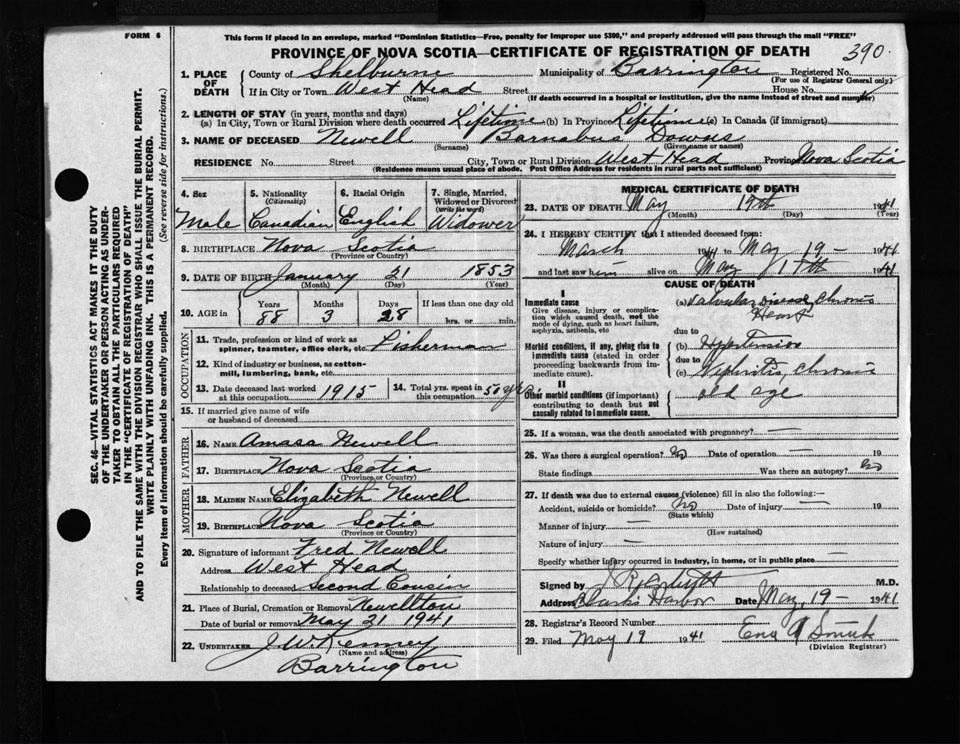 FORM 6
This form if placed in an envelope, marked "Dominion Statistics—Free, penalty for improper use $300," and properly addressed will pass through the mail "FREE"
PROVINCE OF NOVA SCOTIA—CERTIFICATE OF REGISTRATION OF DEATH
390.
1. PLACE OF DEATH
County of Shelburne Municipality of Barrington Registered No.
(For use of Registrar General only)
If in City or Town West Head Street House No.
(Name) (If death occurred in a hospital or institution, give the name instead of street and number)
2. LENGTH OF STAY (in years, months and days)
(a) In City, Town or Rural Division where death occurred Lifetime (b) In Province Lifetime (c) In Canada (if immigrant)
3. NAME OF DECEASED Newell Barnabus Downs
(Surname) (Given name or names)
RESIDENCE No. Street City, Town or Rural Division West Head Province Nova Scotia
(Residence means usual place of abode. Post Office Address for residents in rural parts not sufficient)
4. Sex
Male
5. Nationality
(Citizenship)
Canadian
6. Racial Origin
English
7. Single, Married, Widowed or Divorced
(write the word)
Widower
8. BIRTHPLACE Nova Scotia
(Province or Country)
9. DATE OF BIRTH January 21 1853
(Month) (Day) (Year)
10. AGE in
Years Months Days If less than one day old
88 3 28 hrs. or min.
OCCUPATION
11. Trade, profession or kind of work as
spinner, teamster, office clerk, etc. Fisherman
12. Kind of industry or business, as cotton-
mill, lumbering, bank, etc.
13. Date deceased last worked
at this occupation 1915
14. Total yrs. spent in
this occupation 50 yrs
15. If married give name of wife
or husband of deceased
FATHER
16. NAME Amasa Newell
17. BIRTHPLACE Nova Scotia
(Province or Country)
MOTHER
18. MAIDEN NAME Elizabeth Newell
19. BIRTHPLACE Nova Scotia
(Province or Country)
20. Signature of informant Fred Newell
Address West Head
Relationship to deceased Second Cousin
21. Place of Burial, Cremation or Removal Newellton
Date of burial or removal May 21 1941
22. UNDERTAKER J. W. Kenney
(Name and address)
Barrington
MEDICAL CERTIFICATE OF DEATH
23. DATE OF DEATH May 19th 1941
(Month) (Day) (Year)
24. I HEREBY CERTIFY that I attended deceased from:
March 1941 to May 19- 1941
and last saw him alive on May 17th 1941
CAUSE OF DEATH
I
Immediate cause
Give disease, injury or complication which caused death, not the mode of dying, such as heart failure, asphyxia, asthenia, etc
(a) Valvular Disease, Chronic
Heart
due to
Morbid conditions, if any, giving rise to immediate cause (stated in order proceeding backwards from immediate cause).
(b) Hypertension
due to
(c) Nephritis, Chronic
II
Other morbid conditions (if important) contributing to death but not causally related to immediate cause.
old age
25. If a woman, was the death associated with pregnancy? —
26. Was there a surgical operation? No Date of operation — 19
State findings Was there an autopsy? No
27. If death was due to external causes (violence) fill in also the following:—
Accident, suicide or homicide? No Date of injury — 19
(State which)
Manner of injury —
(How sustained)
Nature of injury —
Specify whether injury occurred in industry, in home, or in public place —
Signed by M.D.
Address Clark's Harbor Date May, 19- 1941
28. Registrar's Record Number
29. Filed May 19 1941 Ena Smith
(Division Registrar)
SEC. 46—VITAL STATISTICS ACT MAKES IT THE DUTY
OF THE UNDERTAKER OR PERSON ACTING AS UNDER-
TAKER TO OBTAIN ALL THE PARTICULARS REQUIRED
IN THE "CERTIFICATE OF REGISTRATION OF DEATH"
AND TO FILE THE SAME WITH THE DIVISION REGISTRAR WHO SHALL ISSUE THE BURIAL PERMIT.
WRITE PLAINLY WITH UNFADING INK. THIS IS A PERMANENT RECORD.
Every item of information should be carefully supplied. (See reverse side for instructions.)